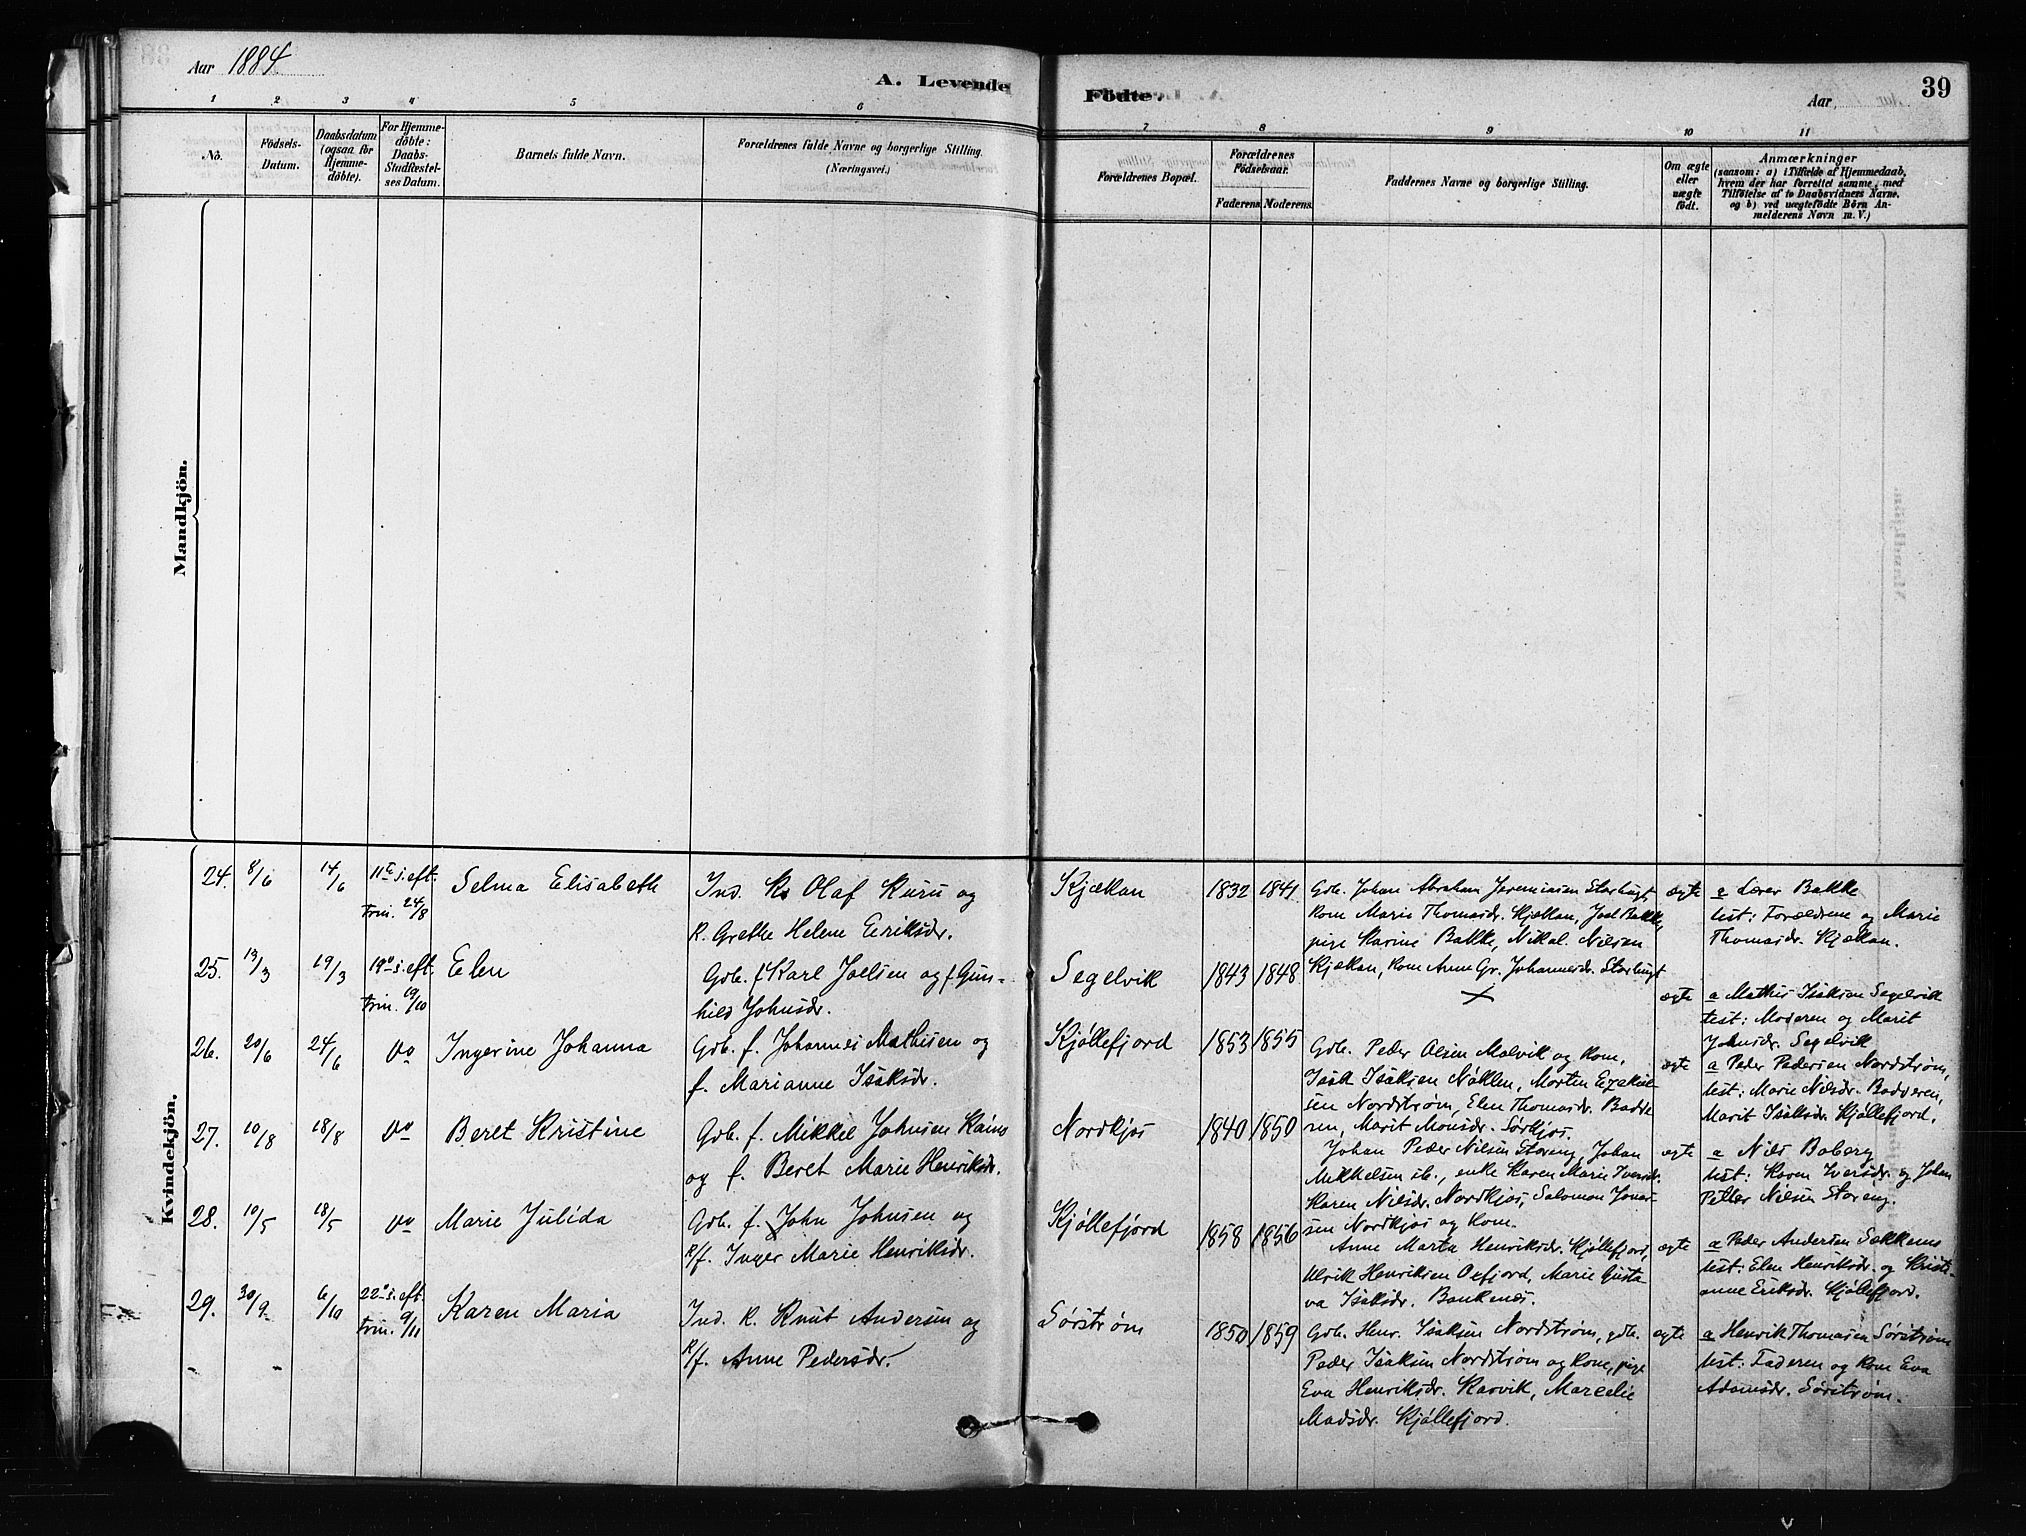 Aar 1884.
A. Levende Födte.
39
Aar
1 2 3 4 5 6 7 8 9 10 11
No.
Födsels-Datum.
Daabsdatum (ogsaa for Hjemme-döbte).
For Hjemme-döbte: Daabs-Stadfæstel-ses Datum.
Barnets fulde Navn.
Forældrenes fulde Navne og borgerlige Stilling. (Næringsvei.)
Forældrenes Bopæl.
Forældrenes Födselsaar.
Faderens. Moderens.
Faddernes Navne og borgerlige Stilling.
Om ægte eller uægte födt.
Anmærkninger
(saasom: a) i Tilfælde af Hjemmedaab, hvem der har forrettet samme, med Tilföielse af to Daabsvidners Navne, og b) ved uægtefödte Börn Anmelderens Navn m. V.)
Mandkjön.
Kvindekjön.
24. 8/6 14/6 11te s. eft. Trin. 24/8
Selma Elisabeth
Ind. K. Olaf Kuru og
K. Grethe Helene Eriksdr.
Kjækan
1832 1841
Gdb. Johan Abraham Jeremiasen Storbugt,
kone Marie Thomasdr. Kjækan, Joel Bakke,
pige Karine Bakke, Nikal. Nilsen
Kjækan, kone Anne Gr. Johannesdr. Storbugt
ægte
a Lærer Bakke
test: Forældrene og Marie
Thomasdr. Kjækan.
25. 13/3 19/3 19o s. eft. Trin. 19/10
Elen
Gdb. f. Karl Joelsen og f. Gun-
hild Johnsdr.
Segelvik
1843 1848
×
ægte
a Mathis Isaksen Segelvik
test: Moderen og Marit
Johnsdr. Segelvik
26. 20/6 24/6 do
Ingerine Johanna
Gdb. f. Johannes Mathisen og
f. Marianne Isaksdr.
Kjøllefjord
1853 1855
Gdb. Peder Olsen Malvik og kone,
Isak Isaksen Nøklen, Morten Ezekiel-
sen Nordstrøm, Elen Thomasdr. Badde
ren, Marit Monsdr. Sørkjos.
ægte
a Peder Pedersen Nordstrøm,
test: Marie Nilsdr. Badderen,
Marit Isaksdr. Kjøllefjord.
27. 10/8 18/8 do
Beret Kristine
Gdb. f. Mikkel Johnsen Kaino
og f. Beret Marie Henriksdr.
Nordkjos
1840 1850
Johan Peder Nilsen Storeng, Johan
Mikkelsen ib., enke Karen Marie Iversdr.
Karen Nilsdr. Nordkjos, Salomon Jonas-
sen Nordkjos og kone.
ægte
a Nils Boberg
test: Karen Iversdr. og Johan
Petter Nilsen Storeng.
28. 10/5 18/5 do
Marie Julida
Gdb. f. John Johnsen og
K/f. Inger Marie Henriksdr.
Kjøllefjord
1858 1856
Anne Marta Henriksdr. Kjøllefjord,
Ulrik Henriksen Oxfjord, Marie Gusta
va Isaksdr. Bankenæs.
ægte
a Peder Andersen
test: Elen Henriksdr. og Kristi-
anne Eriksdr. Kjøllefjord.
29. 30/9 6/10 22o s. eft. Trin. 9/11
Karen Maria
Ind. K. Knut Andersen og
K/f. Anne Pedersdr.
Sørstrøm
1850 1859
Gdb. Henr. Isaksen Nordstrøm, gdb.
Peder Isaksen Nordstrøm og kone, pige
Eva Henriksdr. Karvik, Marcelie
Madsdr. Kjøllefjord.
ægte
a Henrik Thomasen Sørstrøm
test: Faderen og kone Eva
Adamsdr. Sørstrøm.